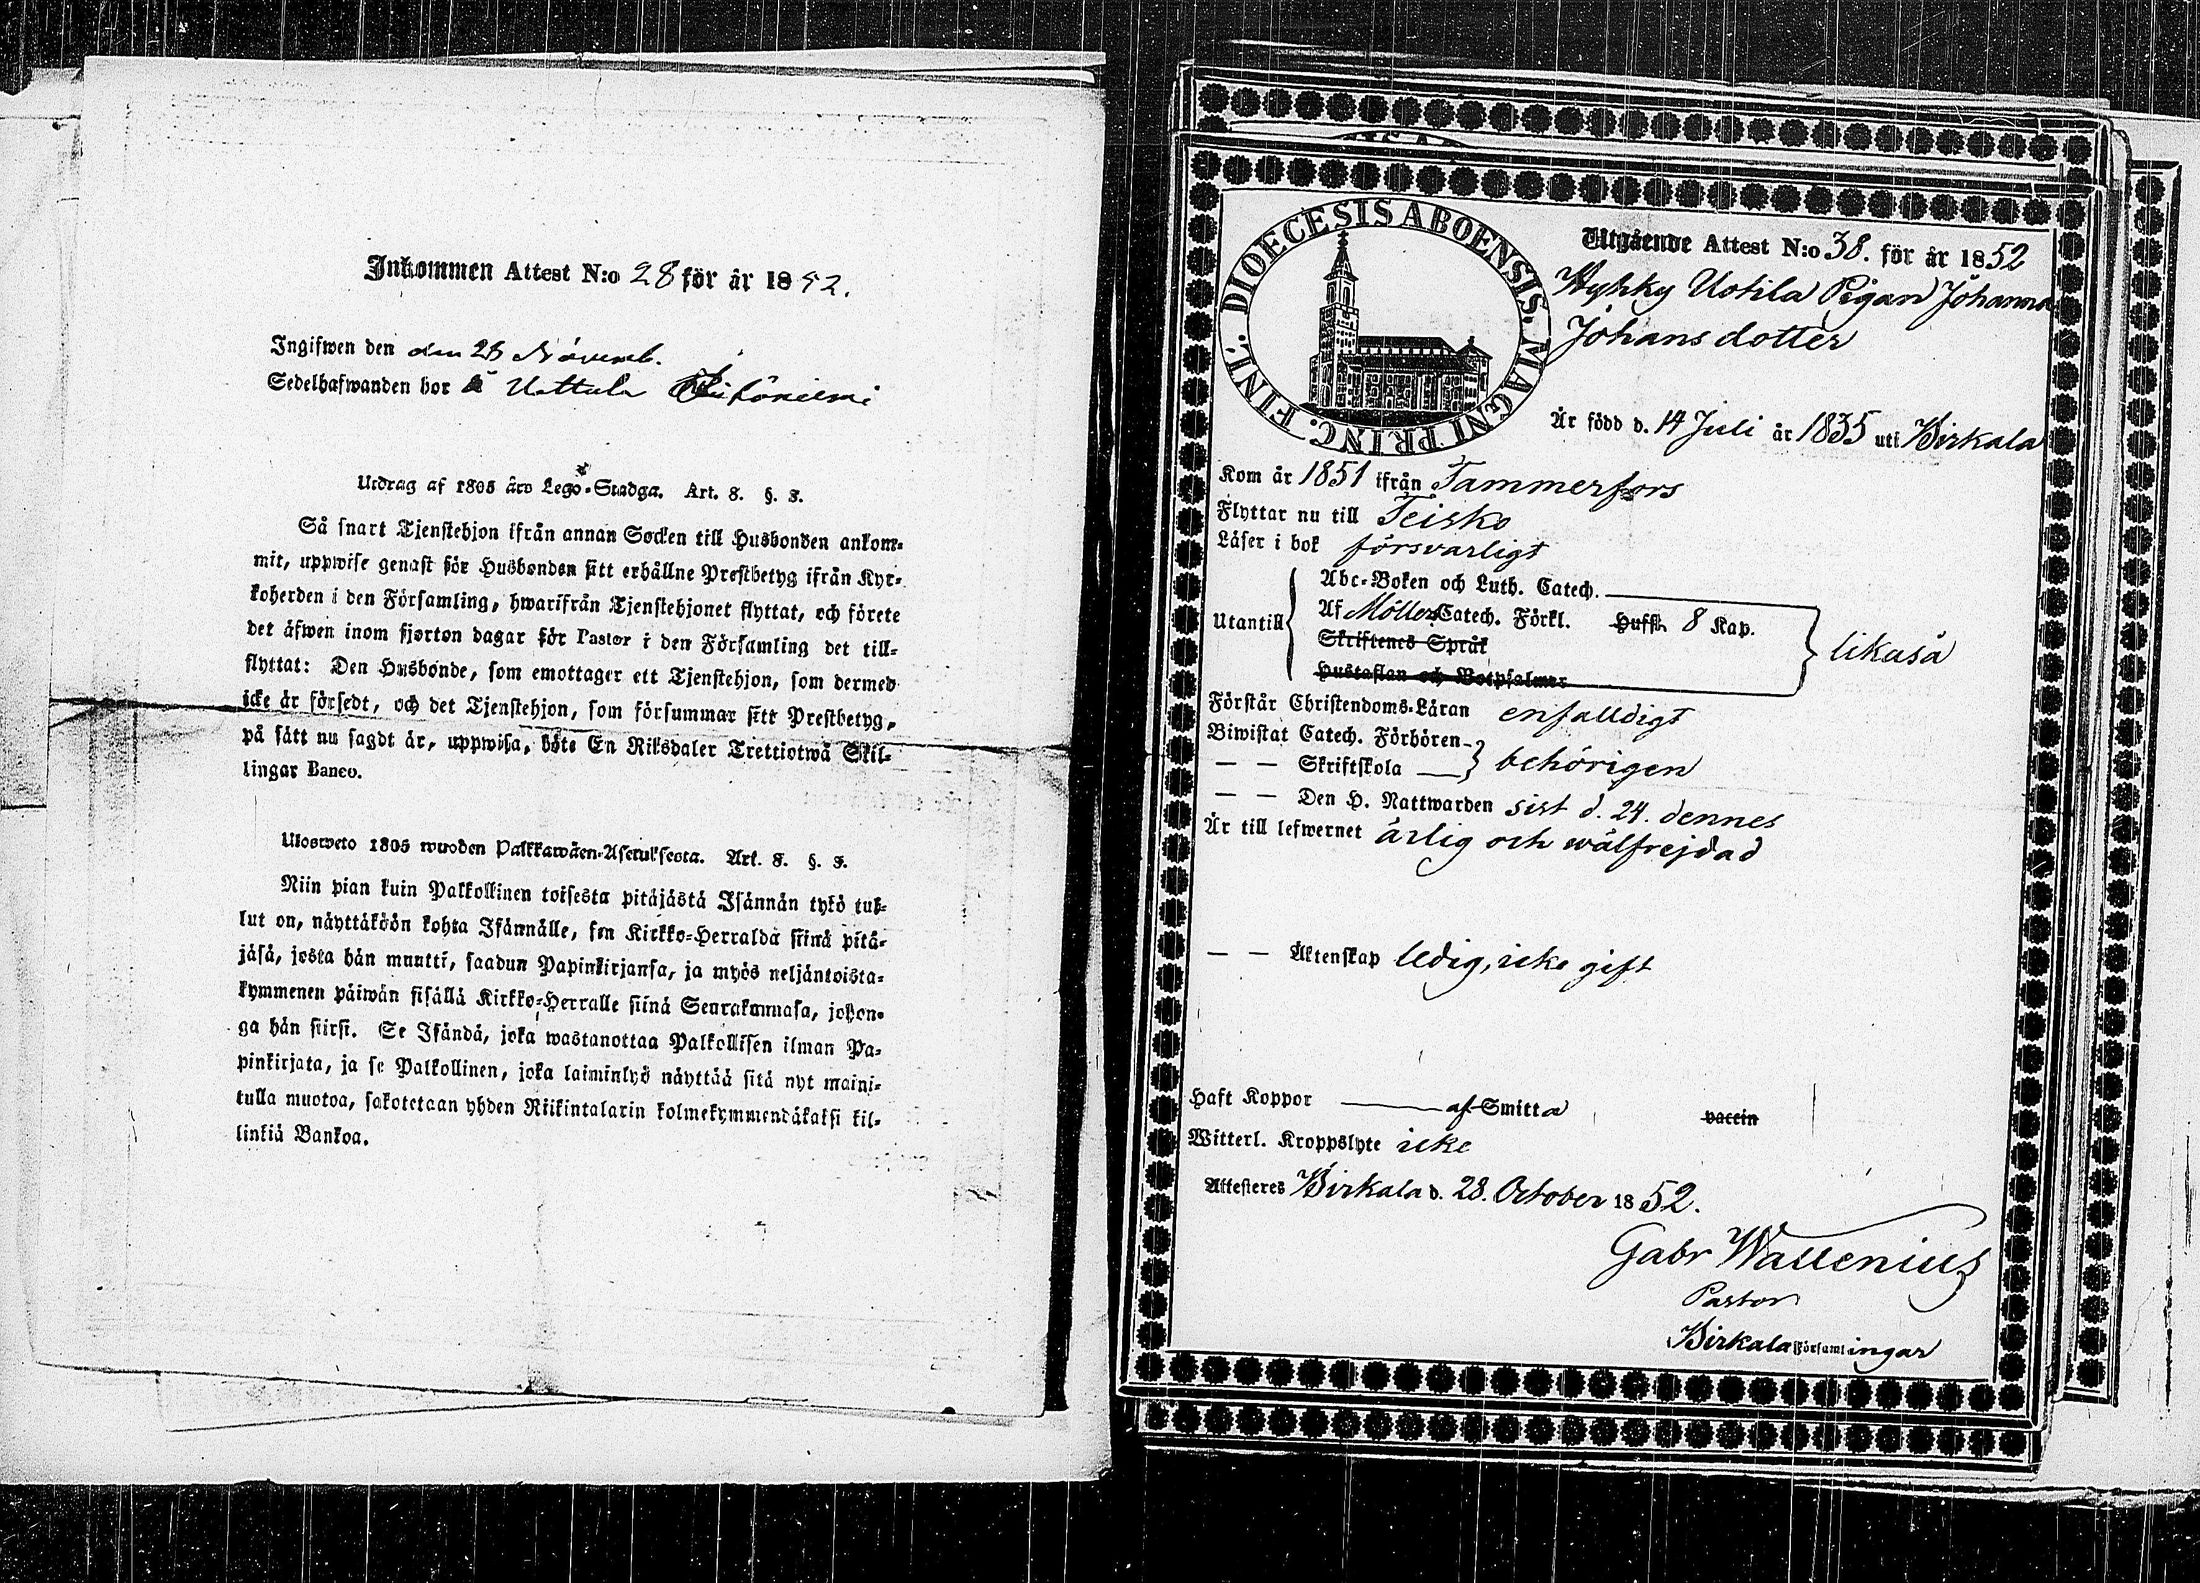 Inkommen Attest N:o 28 för år 1852.
Ingifwen den den 28 Novemb.
Sedelhafwanden bor å Uottula
Utdrag af 1805 års Lego-Stadga. Art. 8. §. 3.
Så snart Tjenstehjon ifrån annan Socken till Husbonden ankom-
mit, uppwise genast för Husbonden sitt erhållne Prestbetyg ifrån Kyr-
koherden i den Församling, hwarifrån Tjenstehjonet flyttat, och förete
det äfwen inom fjorton dagar för Pastor i den Församling det till-
flyttat: Den Husbonde, som emottager ett Tjenstehjon, som dermed
icke är försedt, och det Tjenstehjon, som försummar sitt Prestbetyg,
på sätt nu sagdt är, uppwisa, böte En Riksdaler Trettiotwå Skil-
lingar Banco.
Ulosweto 1805 wuoden Palkkawäen-Asetuksesta. Art. 8. §. 3.
Niin pian kuin Palkollinen toisesta pitäjästä Isännän tykö tul-
lut on, näyttäköön kohta Isännälle, sen Kirkko-Herralda siinä pitä-
jäsä, josta hän muutti, saadun Papinkirjansa, ja myös neljäntoista-
kymmenen päiwän sisällä Kirkko-Herralle siinä Seurakunnasa, johon-
ga hän siirsi. Se Isändä, joka wastanottaa Palkollisen ilman Pa-
pinkirjata, ja se Palkollinen, joka laiminlyö näyttää sitä nyt maini-
tulla muotoa, sakotetaan yhden Riikintalarin kolmekymmendäkaksi kil-
linkiä Bankoa.
DIOECESIS ABOENSIS. MAGNI PRINC. FINL.
Utgående Attest N:o 38. för år 1852
Hyhky Uotila Pigan Johanna
Johans dotter
Är född d. 14 Juli år 1835 uti Birkala
Kom år 1851 ifrån Tammerfors
Flyttar nu till Teisko
Läser i bok försvarligt
Utantill
Abc-Boken och Luth. Catech.
Af Möllers Catech. Förkl. Hufst. 8 Kap.
Skriftenes Språk
Hustaflan och Botpsalmer
likaså
Förstår Christendoms-Läran enfalldigt
Biwistat Catech. Förhören
— — Skriftskola
behörigen
— — Den H. Nattwarden sist d. 24. dennes
Är till lefwernet ärlig och wälfrejdad
— — Äktenskap ledig, icke gift
Haft Koppor af Smitta vaccin
Witterl. Kroppslyte icke
Attesteres Birkala d. 28. October 1852.
Gabr Wallenius
Pastor
Birkala Församlingar